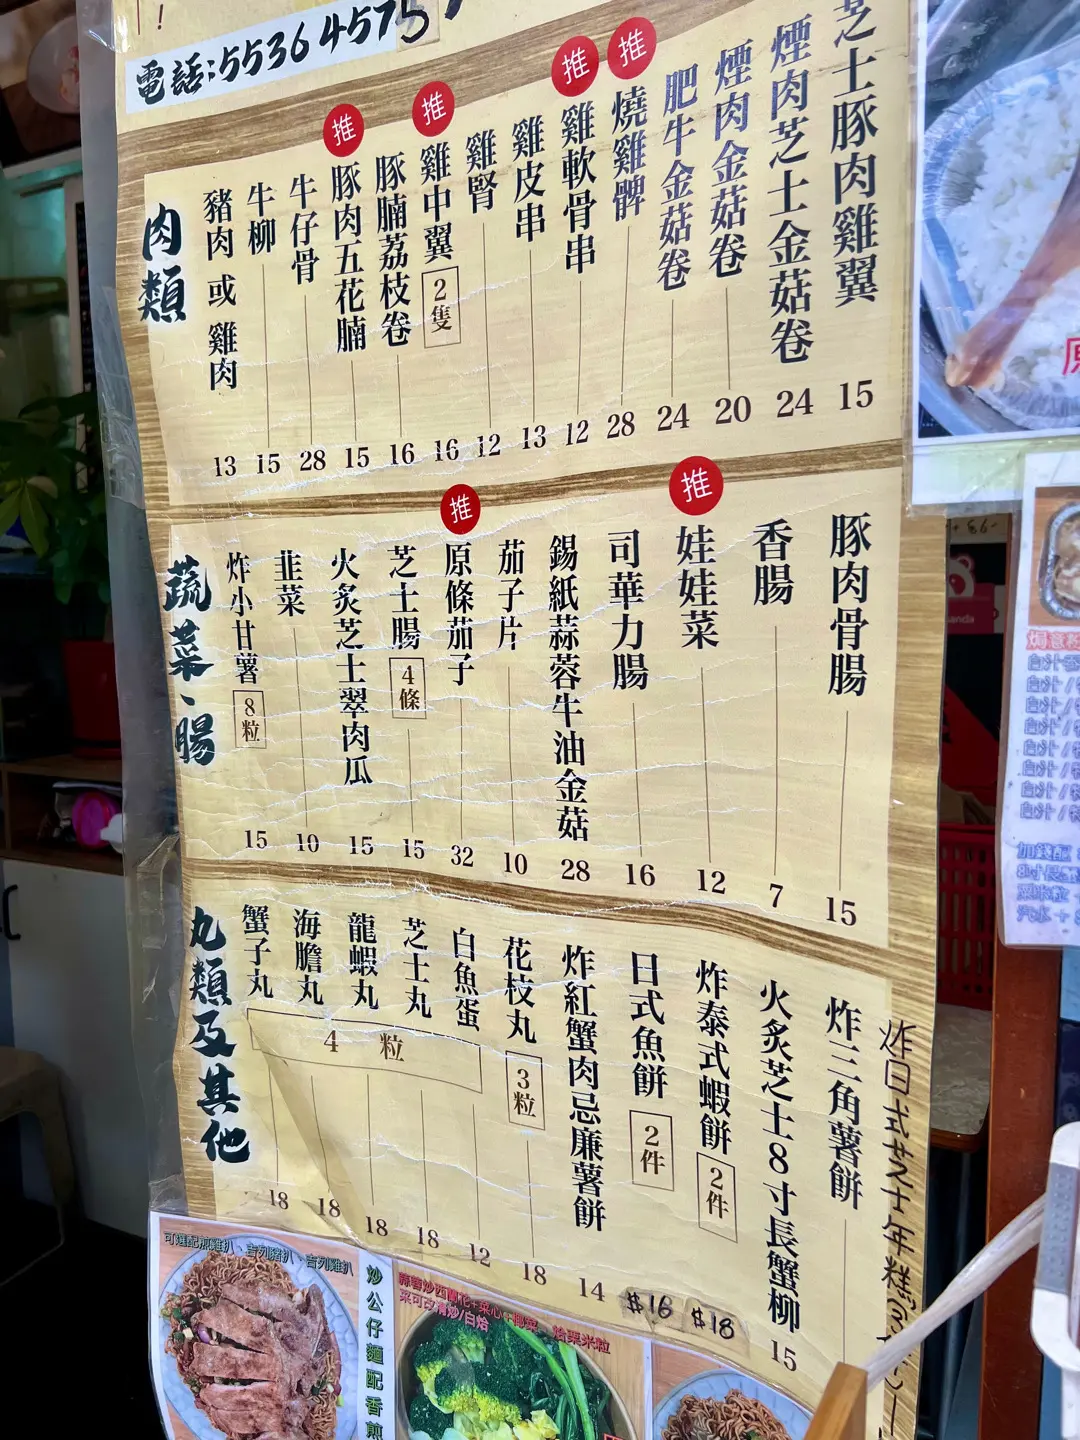 電話:55364575
肉類
豬肉 或 雞肉 13
牛柳 15
牛仔骨 28
推 豚肉五花腩 15
豚腩荔枝卷 16
推 雞中翼 2隻 16
雞腎 12
雞皮串 13
推 雞軟骨串 12
推 燒雞髀 28
肥牛金菇卷 24
煙肉金菇卷 20
煙肉芝士金菇卷 24
芝士豚肉雞翼 15
蔬菜、腸
炸小甘薯 8粒 15
韭菜 10
火炙芝士翠肉瓜 15
芝士腸 4條 15
推 原條茄子 32
茄子片 10
錫紙蒜蓉牛油金菇 28
司華力腸 16
推 娃娃菜 12
香腸 7
豚肉骨腸 15
丸類及其他
蟹子丸 18
海膽丸 18
龍蝦丸 18
芝士丸 18
白魚蛋 12
4 粒
花枝丸 3粒 18
炸紅蟹肉忌廉薯餅 14
日式魚餅 2件 $16
炸泰式蝦餅 2件 $18
火炙芝士8寸長蟹柳 15
炸三角薯餅
炸日式芝士年糕
可選配煎雞扒、吉列豬扒、吉列雞扒
炒公仔麵配香煎
蒜蓉炒西蘭花+菜心+椰菜
菜可改清炒/白焓